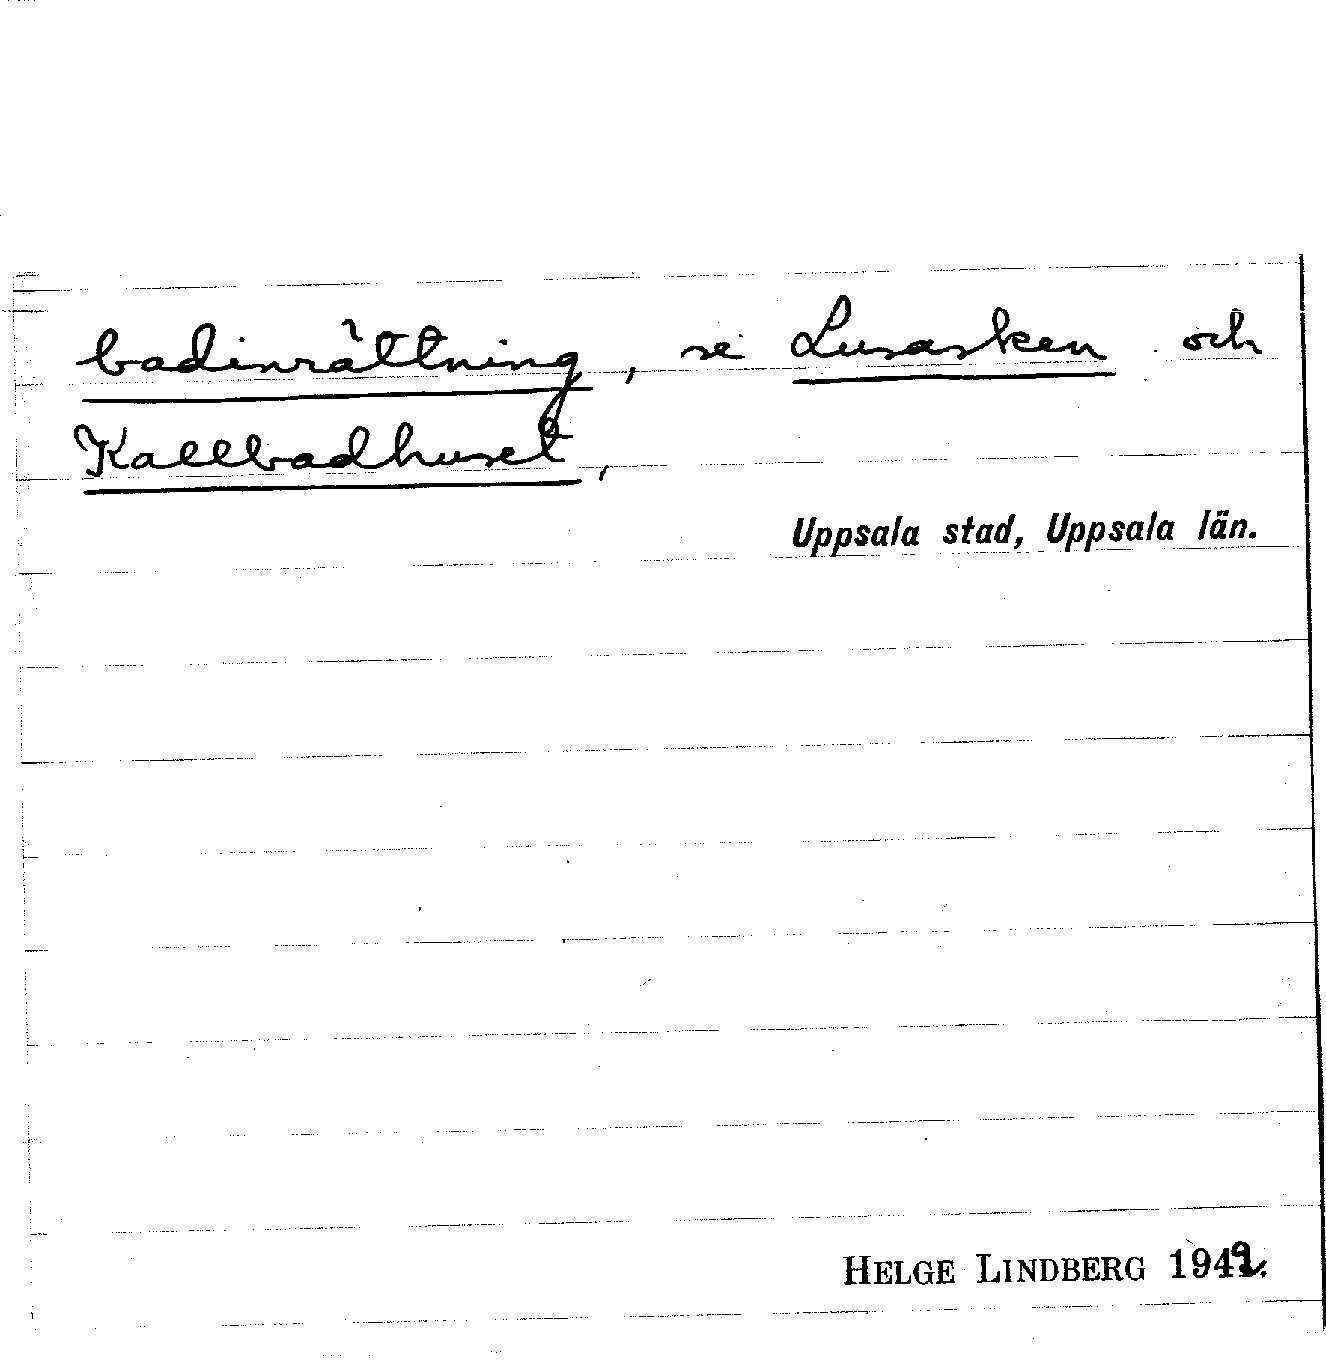 badinrättning, se Lusasken och
Kallbadhuset,
Uppsala stad, Uppsala län.
HELGE LINDBERG 1942.